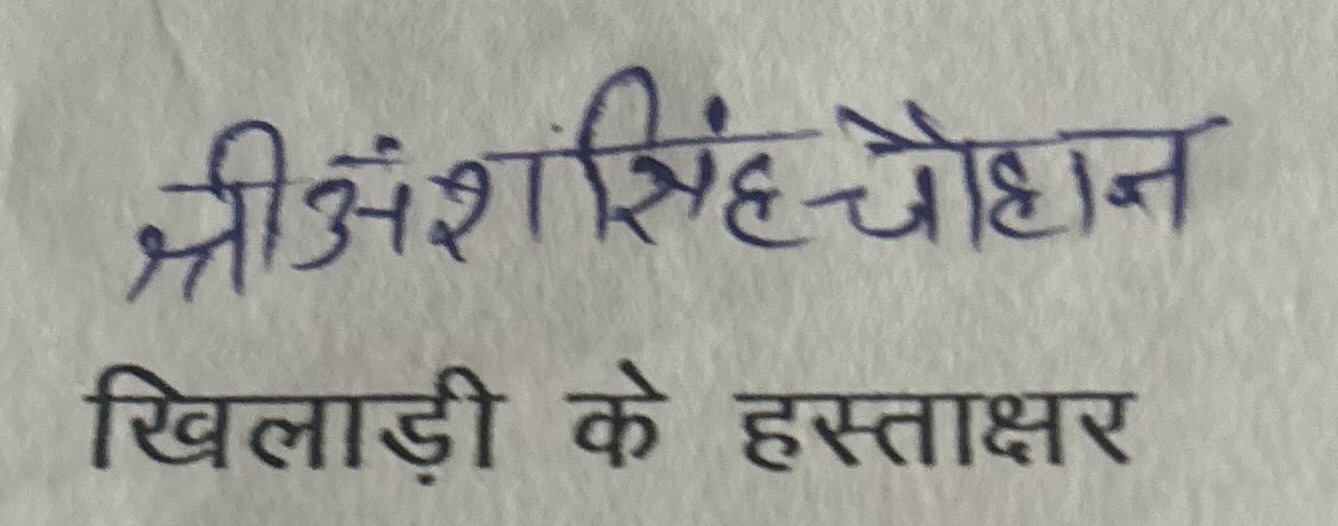 श्रीअंश सिंह चौहान
खिलाड़ी के हस्ताक्षर